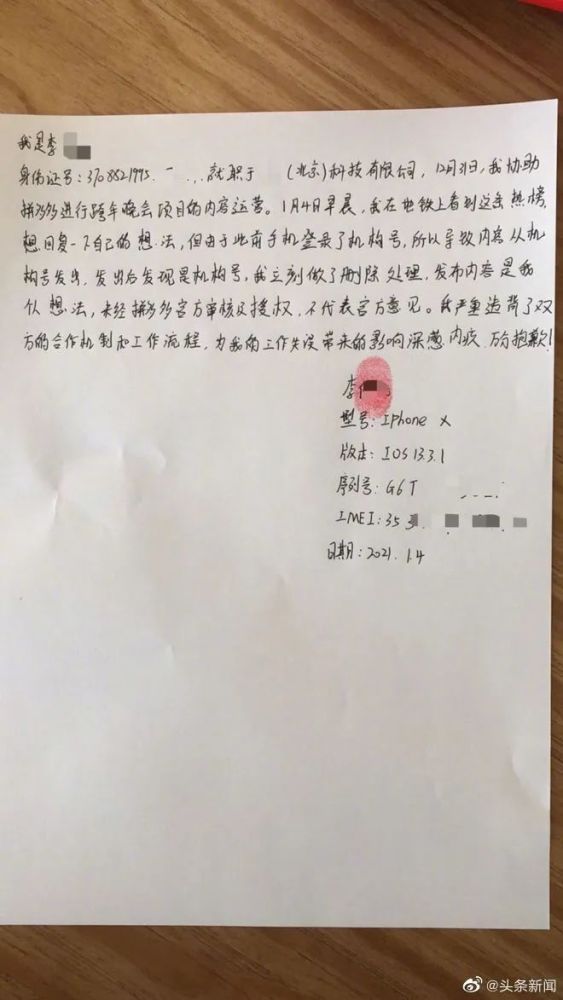 我是李
身份证号:3708821995. 就职于 (北京)科技有限公司,12月31日,我协助
拼多多进行跨年晚会项目的内容运营。1月4日早晨,我在地铁上看到这条热榜,
想回复一下自己的想法,但由于此前手机登录了机构号,所以导致内容从机
构号发出,发出后发现是机构号,我立刻做了删除处理,发布内容是我
个人想法,未经拼多多官方审核及授权,不代表官方意见。我严重违背了双
方的合作机制和工作流程,为我的工作失误带来的影响深感内疚,万分抱歉!
李
型号:Iphone X
版本:IOS 13.3.1
序列号:G6T
IMEI:35
日期:2021.1.4
@头条新闻